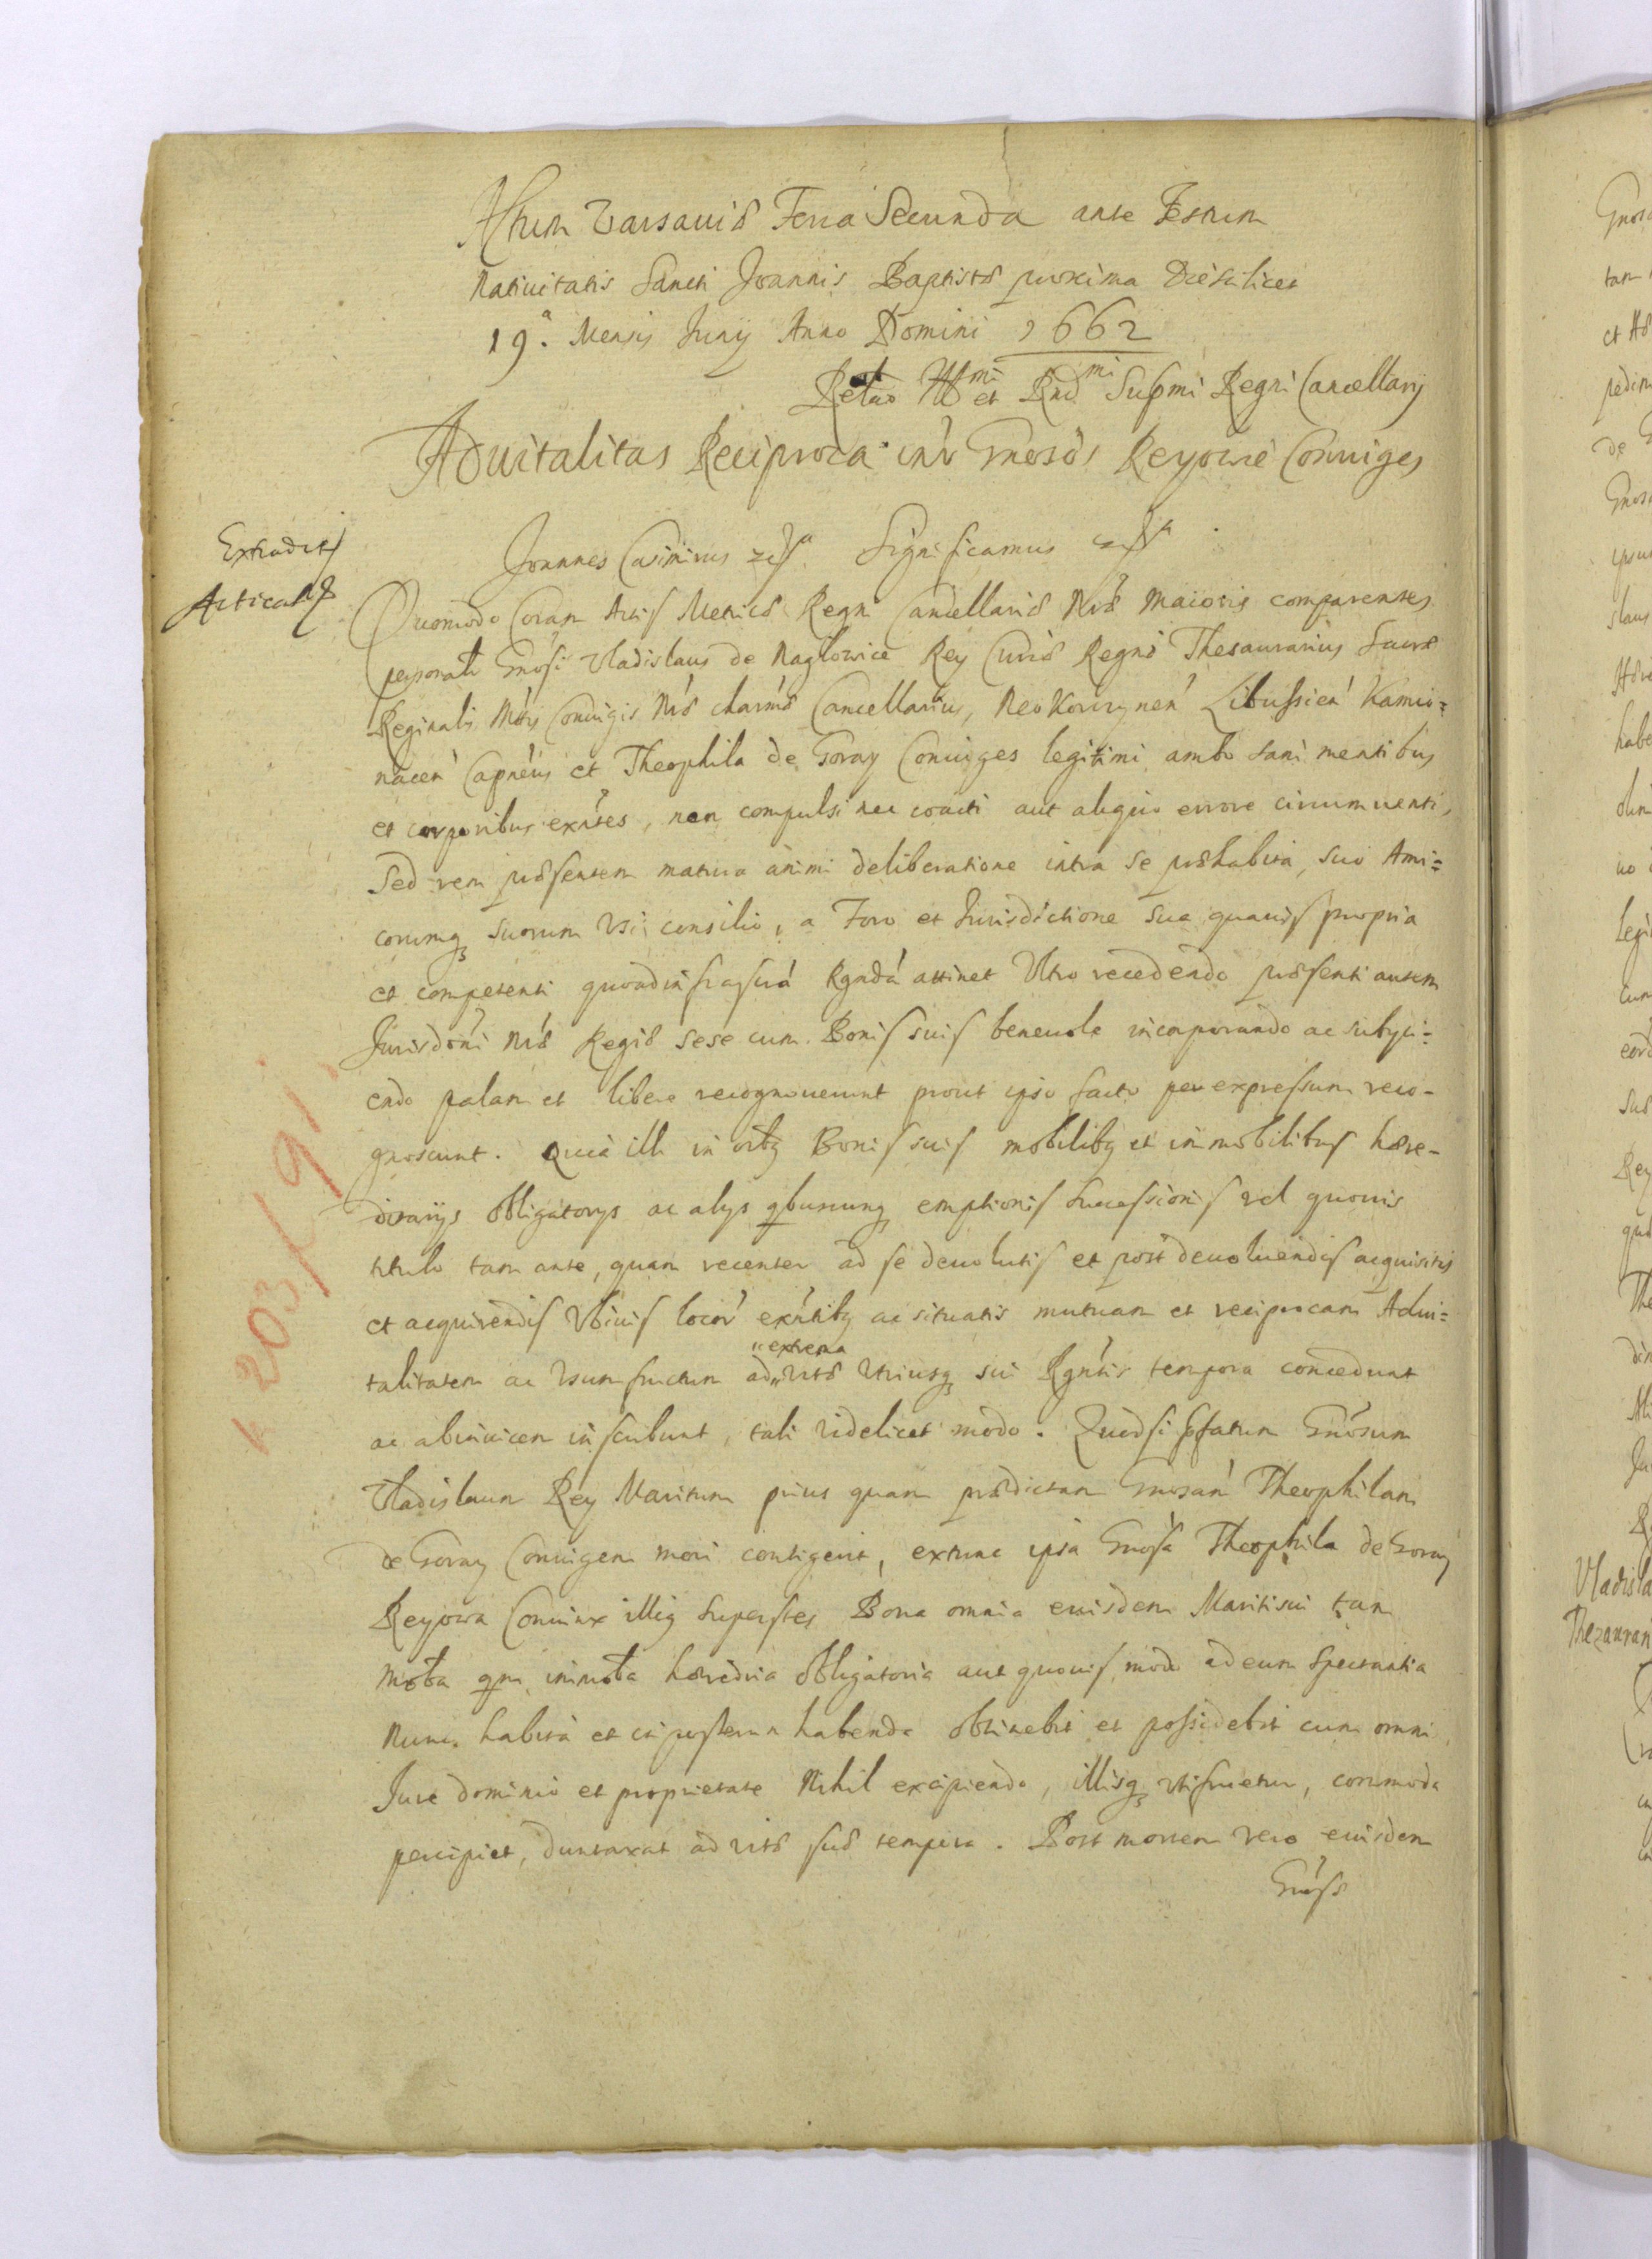 Actum Varsauiæ Feria Secunda ante Festum
Natiuitatis Sancti Joannis Baptistæ proxima Die scilicet
19.ª Mensis Junÿ Anno Domini 1662
Relatio Illmi et Rndmi Supmi Regni Cancellarÿ
Aduitalitas Reciproca intr Gnosos Reyowie Coniuges
Extradit
Joannes Casimirus Significamus
Quomodo Coram Actis Metricæ Regni Cancellariæ Nræ Maioris comparentes
personalr Gnosi Vladislaus de Nagłowice Rey Curiæ Regni Thesaurarius Sacræ
Reginalis Mttis Coniugis Nræ charmæ Cancellarius, NeoKorczynen Libussien Kamio=
nacen Capneus et Theophila de Goray Coniuges legitimi ambo sani mentibus
et corporibus exntes, non compulsi nec coacti aut aliquo errore circumuenti,
Sed rem præsentem matura animi deliberatione intra se præhabita, suo Ami=
corumq suorum vsi consilio, a Foro et Jurisdictione sua quauis propria
et competenti quoad infrascra Rgnda attinet Vltro recedendo præsenti autem
Jurisdoni Næ Regiæ sese cum Bonis suis beneuole incorporando ac subyci=
endo palam et libere recognouerunt prout ipso facto per expressum reco-
gnoscunt. Quia illi in oibq Bonis suis mobilibq et immobilibus hære-
ditarÿs obligatorÿs ac alÿs qbuscunq emptionis successionis vel quouis
titulo tam ante, quam recenter ad se deuolutis et post deuoluendis acquisitis
et acquirendis Vbiuis locor exntibq ac situatis mutuam et reciprocam Adui=
talitatem ac vsumfructum ad „extrema vitæ vtriusq sui Rgntis tempora concedunt
ac abinuicem inscribunt, tali videlicet modo. Quodsi pfatum Gnosum
Vladislaum Rey Maritum prius quam prædictam Gnosam Theophilam
de Goray Coniugem mori contigerit, extunc ipsa Gnosa Theophila de Goray
Reyowa Coniunx illiq superstes Bona omnia eiusdem Mariti sui tam
mobta qm immobta hæredria obligatoria aut quouis modo ad eum spectantia
nunc habita et in posterum habenda obtinebit et possidebit cum omni
Jure dominio et proprietate Nihil excipiendo, illisq vtifruetur, commoda
percipiet, duntaxat ad vitæ suæ tempora. Post mortem vero eiusdem
Gnosæ
203/91